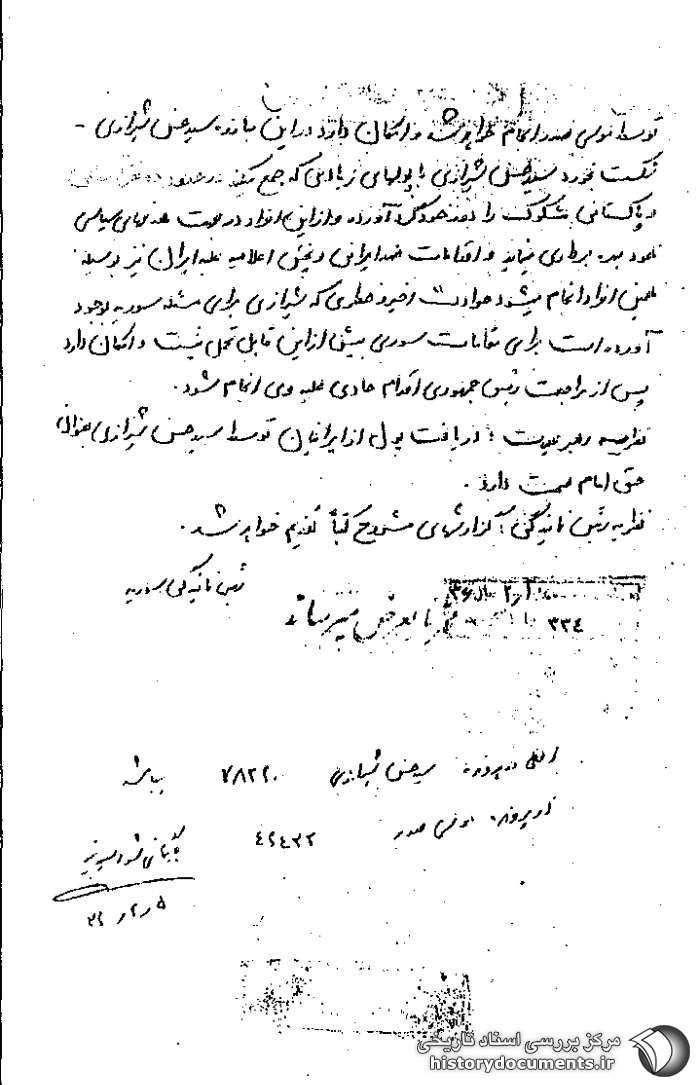 توسط موسی صدر انجام خواهد شد و امکان دارد در این مبارزه سید حسن شیرازی -
شکست بخورد سید حسن شیرازی با پولهای زیادی که جمع میکند در حدود ده نفر
و پاکستانی مشکوک را دور خود گرد آورده و از این افراد در جهت هدفهای سیاسی
خود بهره برداری مینماید و اقدامات ضد ایرانی و پخش اعلامیه علیه ایران نیز بوسیله
همین افراد انجام میشود حوادث اخیر و خطری که شیرازی برای مشله سوریه بوجود
آورده است برای مقامات سوری بیش از این قابل تحمل نیست و امکان دارد
پس از مراجعت رئیس جمهوری اقدام حادی علیه وی انجام شود.
نظریه رهبر عملیات: دریافت پول از ایرانیان توسط سید حسن شیرازی بعنوان
حق امام صحت دارد.
نظریه رئیس نمایندگی: گزارشهای مشروح کتباً تقدیم خواهد شد.
رئیس نمایندگی سوریه
۳۳۴
بعرض میرساند
اصل در پرونده سید حسن شیرازی ۷۸۲۲۰ میباشد
در پرونده موسی صدر ۴۲۴۳۲
بایگانی شود
مرکز بررسی اسناد تاریخی
historydocuments.ir